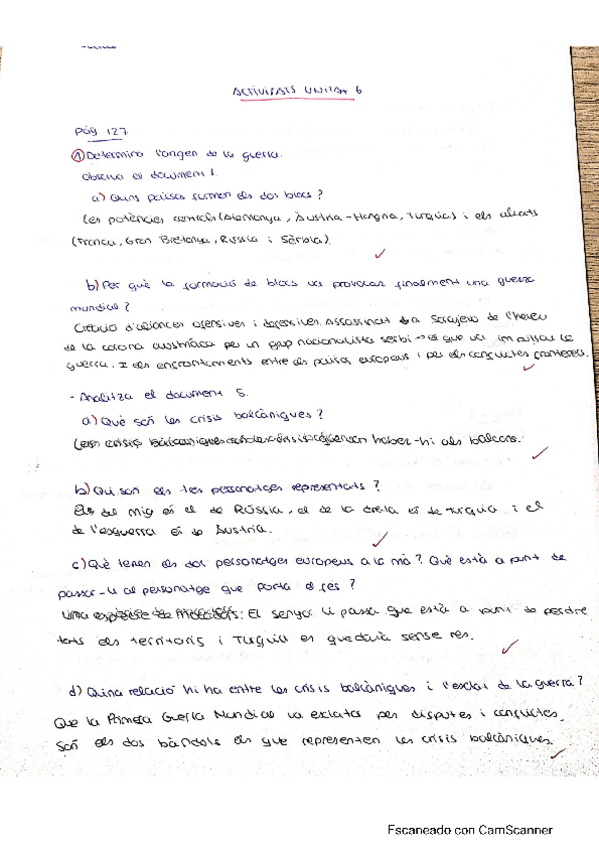 ACTIVITATS UNITAT 6
Pág 127.
① Determina l'origen de la guerra.
Observa el document 1.
a) Quins països formen els dos blocs?
Les potències centrals (Alemanya, Àustria-Hongria, Turquia) i els aliats
(França, Gran Bretanya, Rússia i Sèrbia).
b) Per què la formació de blocs va provocar finalment una guerra
mundial?
Creació d'aliances ofensives i defensives. Assassinat a Sarajevo de l'hereu
de la corona austríaca per un grup nacionalista serbi → el que va impulsar la
guerra. I els enfrontaments entre els països europeus i per els conflictes fronterers.
- Analitza el document 5.
a) Què són les crisis balcàniques?
Les crisis que van haber-hi als balcans.
b) Qui són els tres personatges representats?
El del mig és el de Rússia, el de la dreta és de Turquia i el
de l'esquerra és de Àustria.
c) Què tenen els dos personatges europeus a la mà? Què està a punt de
passar-li al personatge que porta el fes?
El senyor li passa que està a punt de perdre
tots els territoris i Turquia es quedaria sense res.
d) Quina relació hi ha entre les crisis balcàniques i l'esclat de la guerra?
Que la Primera Guerra Mundial va esclatar per disputes i conflictes.
Són els dos bàndols els que representen les crisis balcàniques.
Escaneado con CamScanner